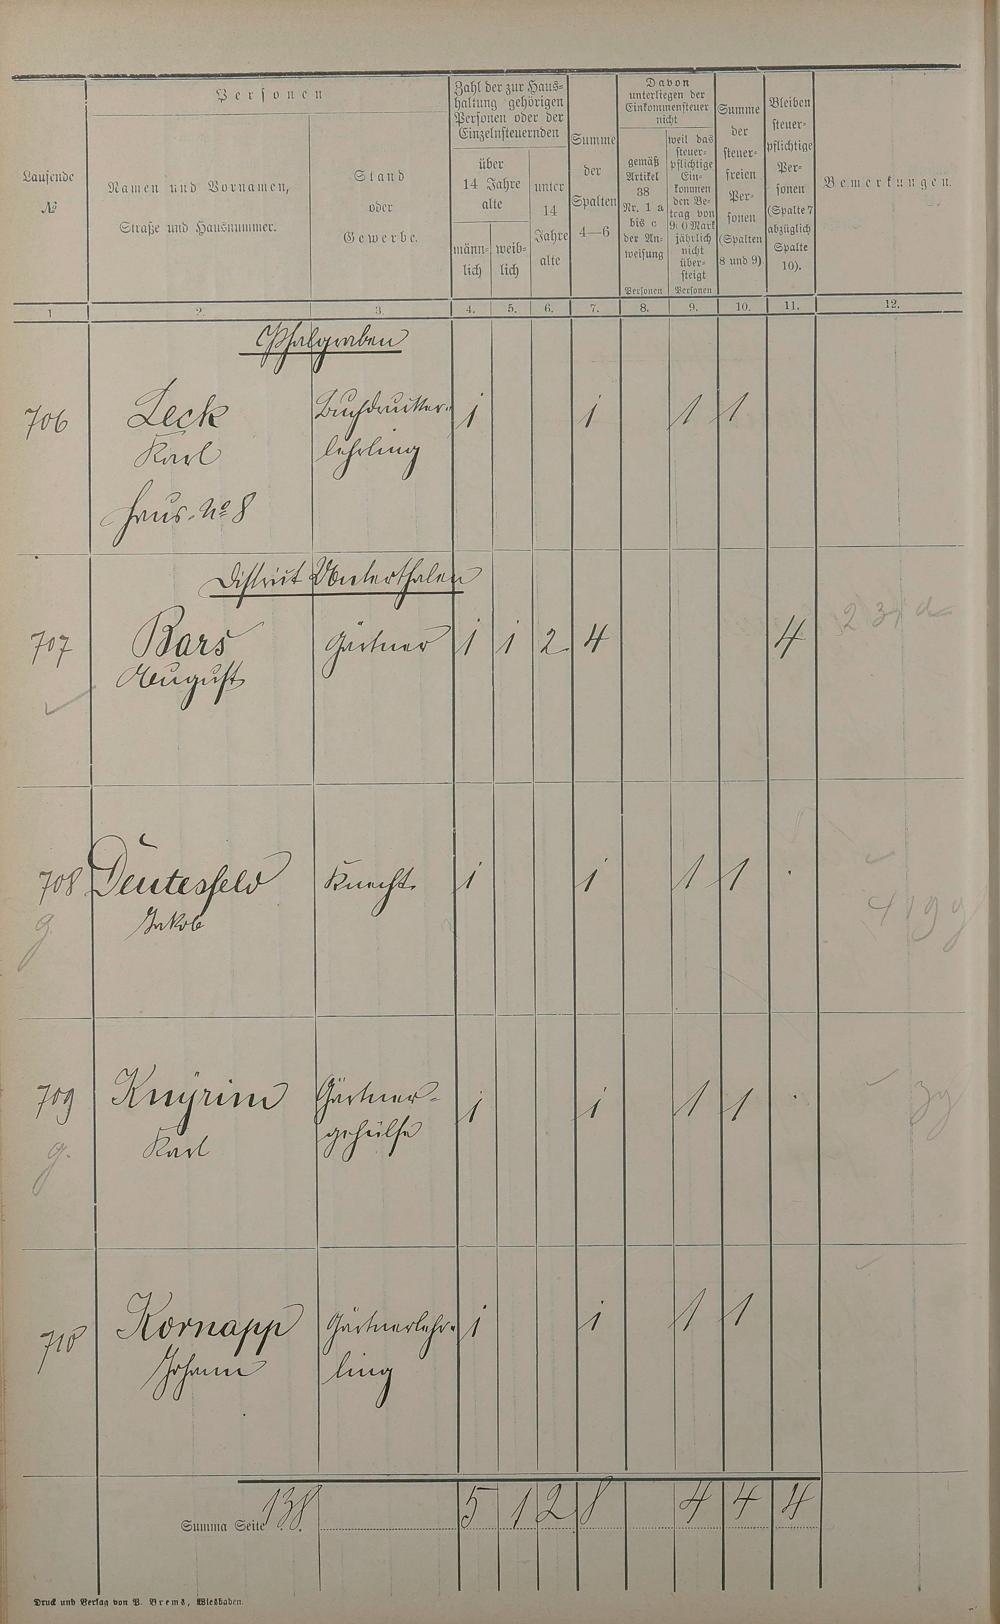 Laufende
№
Personen
Namen und Vornamen,
Straße und Hausnummer.
Stand
oder
Gewerbe.
Zahl der zur Haus-
haltung gehörigen
Personen oder der
Einzelnsteuernden
über
14 Jahre
alte
männ-
lich
weib-
lich
unter
14
Jahre
alte
Summe
der
Spalten
4—6
Davon
unterliegen der
Einkommensteuer
nicht
gemäß
Artikel
38
Nr. 1 a
bis c
der An-
weisung
Personen
weil das
steuer-
pflichtige
Ein-
kommen
den Be-
trag von
900 Mark
jährlich
nicht
über-
steigt
Personen
Summe
der
steuer-
freien
Per-
sonen
(Spalten
8 und 9)
Bleiben
steuer-
pflichtige
Per-
sonen
(Spalte 7
abzüglich
Spalte
10).
Bemerkungen.
1 2. 3. 4. 5. 6. 7. 8. 9. 10. 11. 12.
Pfalgraben
706 Leck Buchdrucker- 1 1 1 1
Karl lehrling
Haus-No 8
District Unterthalen
707 Bars Gärtner 1 1 2 4 4
August
708 Deutesfeld Knecht 1 1 1 1
g. Jakob
4 1 g g
709 Knyrim Gärtner- 1 1 1 1
gehülfe
g. Karl
3 g
710 Kornapp Gärtnerlehr- 1 1 1 1
Johann ling
Summa Seite 138. 5 1 2 8 4 4 4
Druck und Verlag von P. Brems, Wiesbaden.